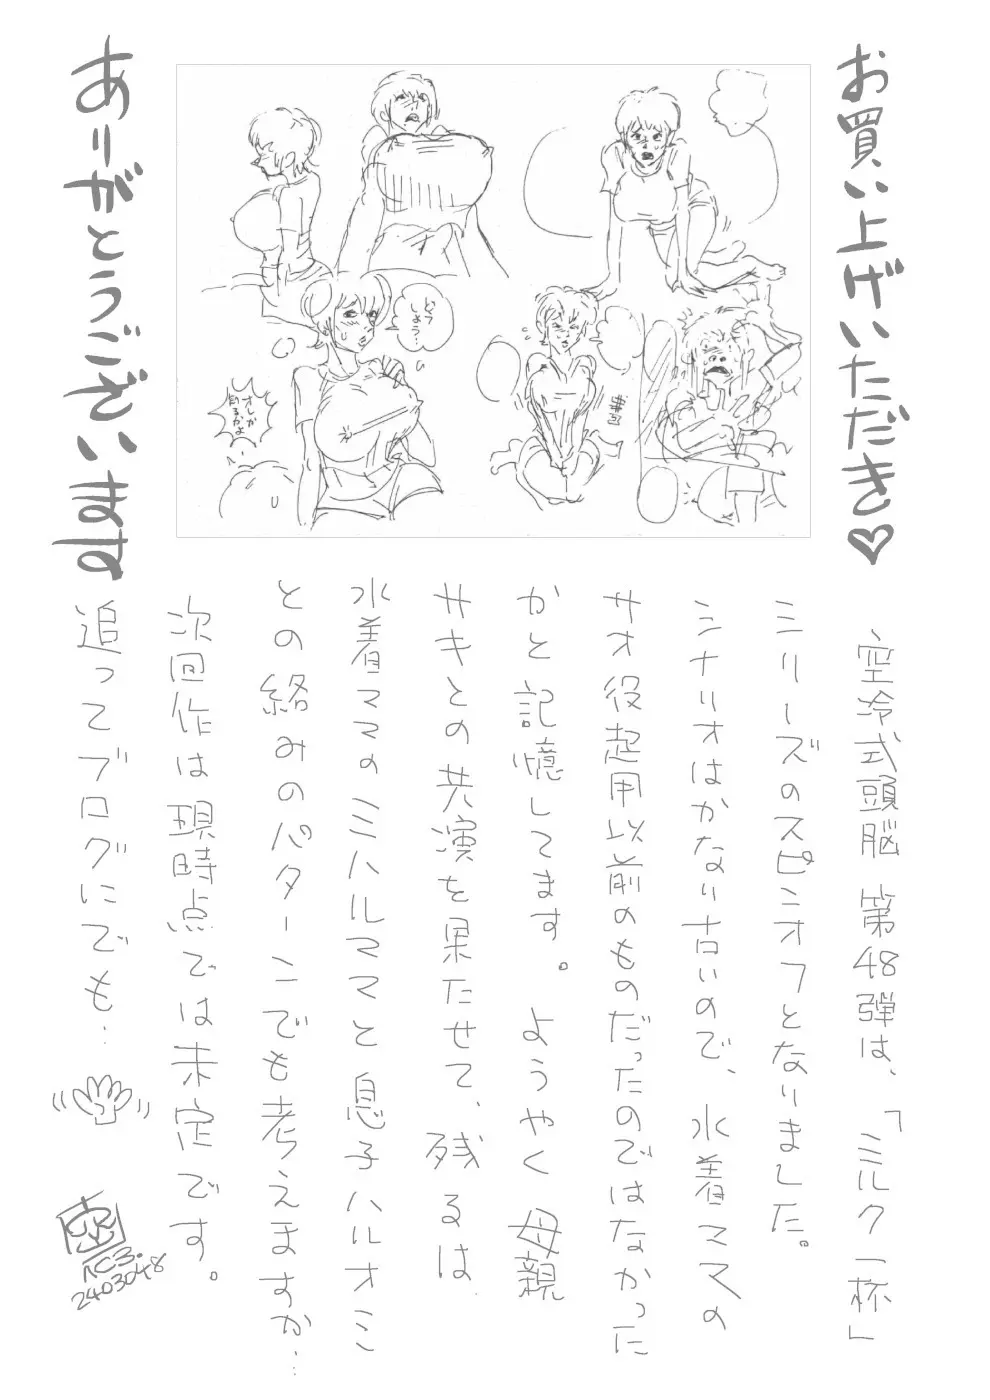 お買い上げいただき♡
ありがとうございます
どうしましょう…
空冷式頭脳 第48弾は、「ミルク一杯」
シリーズのスピンオフとなりました。
シナリオはかなり古いので、水着ママの
サオ役起用以前のものだったのではなかった
かと記憶してます。ようやく母親
サキとの共演を果たせて、残るは
水着ママのミハルママと息子ハルオミ
との絡みのパターンでも考えますか…
次回作は現時点では未定です。
追ってブログにでも…
2403048